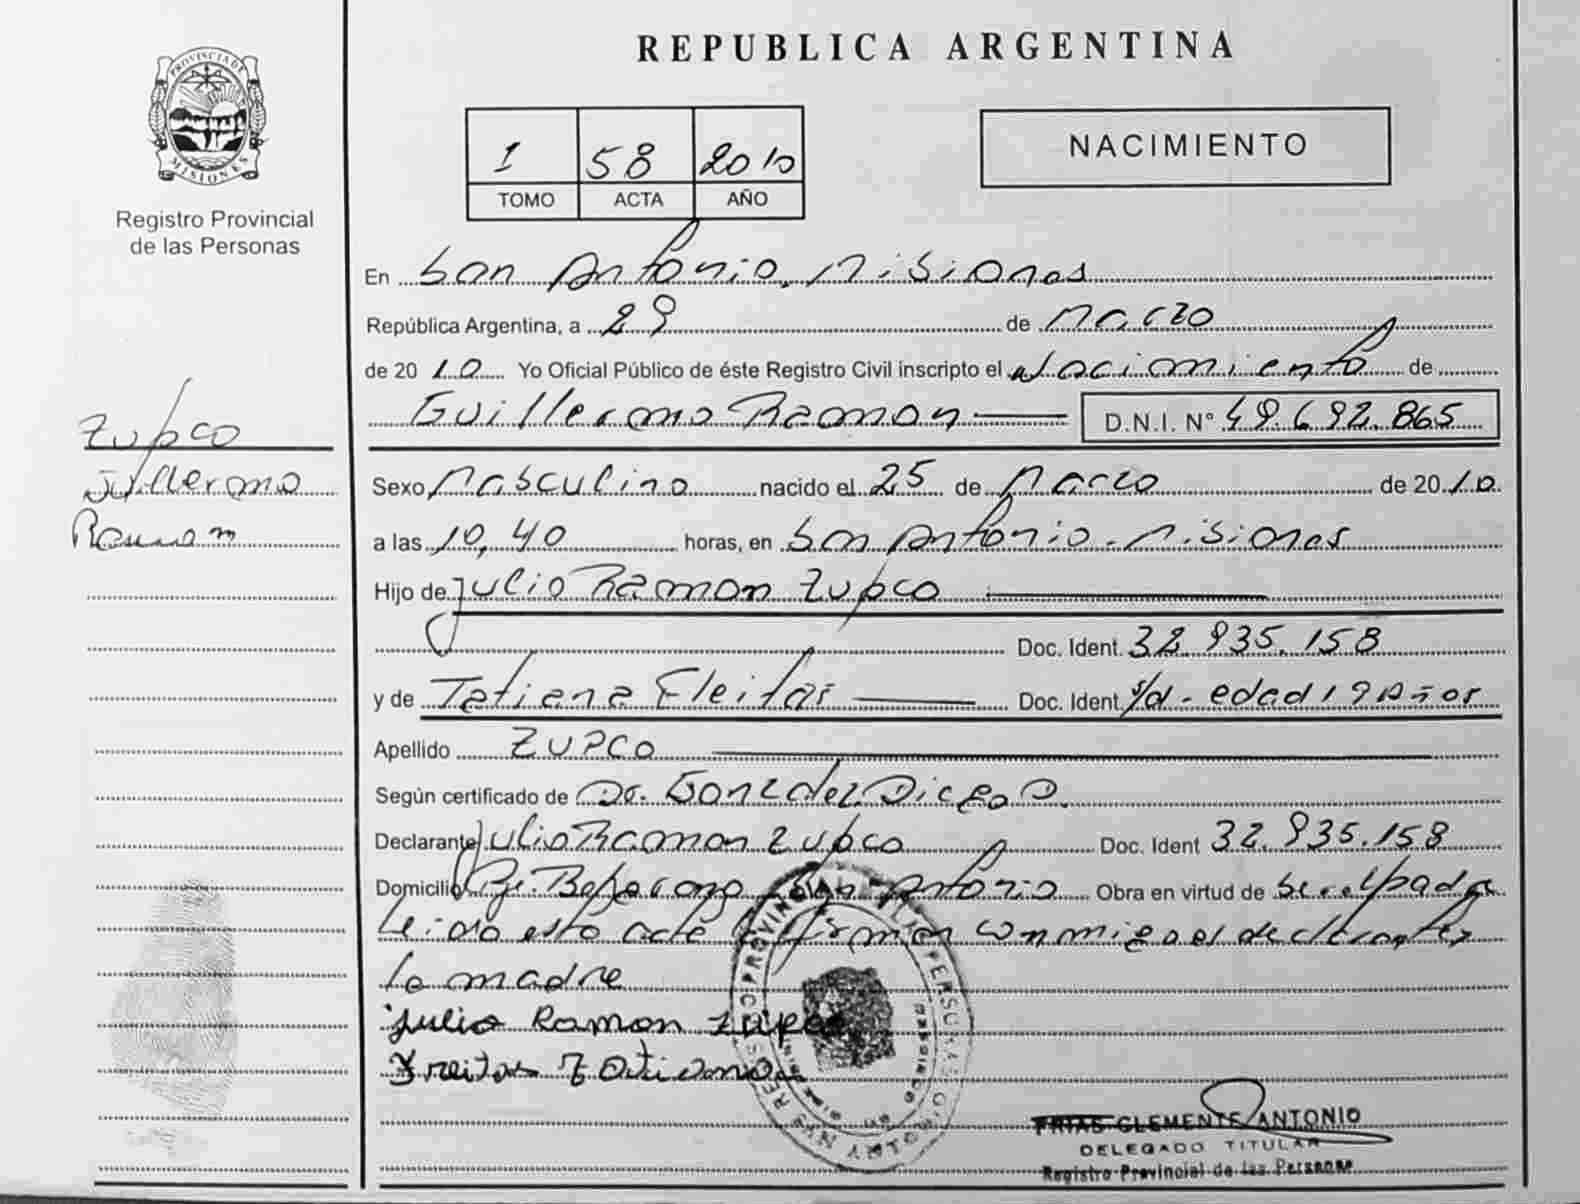 REPUBLICA ARGENTINA
PROVINCIA DE MISIONES
Registro Provincial
de las Personas
1 58 2010
TOMO ACTA AÑO
NACIMIENTO
En San Antonio, Misiones
República Argentina, a 29 de Marzo
de 2010 Yo Oficial Público de éste Registro Civil inscripto el Nacimiento de
Guillermo Ramon D.N.I. Nº 49.692.865
Zupco
Guillermo
Ramon
Sexo Masculino nacido el 25 de Marzo de 2010
a las 10,40 horas, en San Antonio - Misiones
Hijo de Julio Ramon Zupco
Doc. Ident. 32.935.158
y de Tatiana Fleitas Doc. Ident. s/d - edad 19 años
Apellido ZUPCO
Según certificado de Dr. Gonzalez Diego D.
Declarante Julio Ramon Zupco Doc. Ident 32.935.158
Domicilio San Antonio Obra en virtud de
Leida esta acta firman conmigo el declarante y
la madre
Julio Ramon Zupco
Freitas Tatiana
FRIAS CLEMENTE ANTONIO
DELEGADO TITULAR
Registro Provincial de las Personas